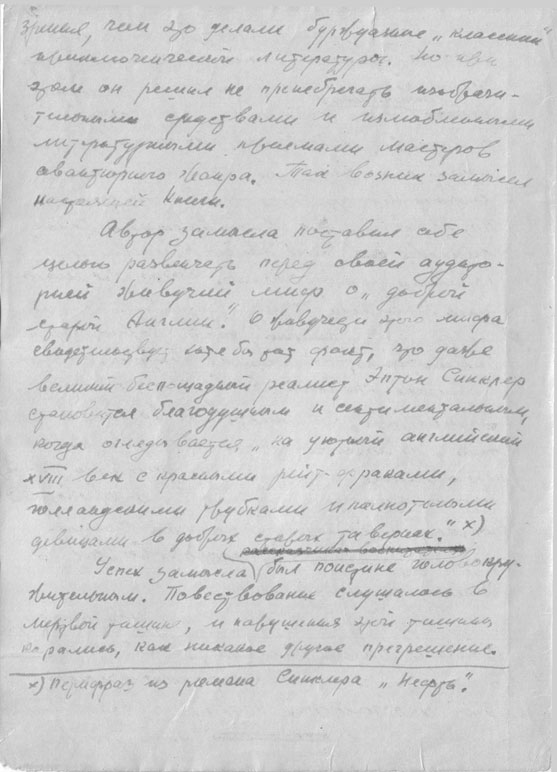 зрения, чем это делали буржуазные „классики"
приключенческой литературы. Но при
этом он решил не пренебрегать изобрази-
тельными средствами и излюбленными
литературными приемами мастеров
авантюрного жанра. Так возник замысел
настоящей книги.
Автор замысла поставил себе
целью развенчать перед своей аудито-
рией живучий миф о „доброй
старой Англии". О живучести этого мифа
свидетельствует хотя бы тот факт, что даже
великий беспощадный реалист Эптон Синклер
становится благодушным и сентиментальным,
когда оглядывается „на уютный английский
XVIII век с красными рейт-фраками,
голландскими трубками и полнотелыми
девицами в добрых старых тавернах." x)
Успех замысла был поистине головокру-
жительным. Повествование слушалось в
мертвой тишине, и нарушения этой тишины
карались, как никакое другое прегрешение.
x) Перифраз из романа Синклера „Нефть".